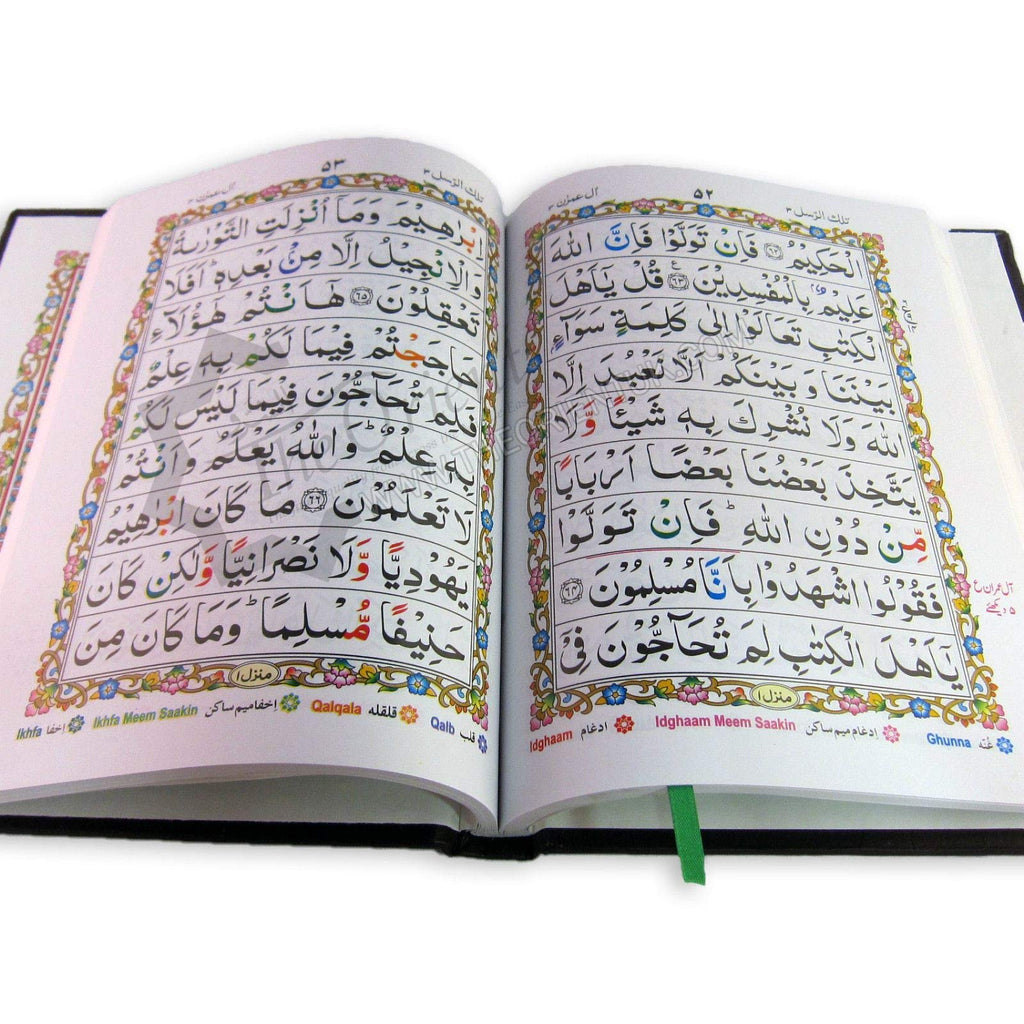 ۵۲
تلك الرسل ۳
آل عمرٰن ۳
الْحَكِيْمُ ﴿۶۲﴾ فَاِنْ تَوَلَّوْا فَاِنَّ اللّٰهَ
عَلِيْمٌۢ بِالْمُفْسِدِيْنَ ﴿۶۳﴾ ع قُلْ يٰۤاَهْلَ
الْكِتٰبِ تَعَالَوْا اِلٰى كَلِمَةٍ سَوَآءٍۭ
بَيْنَنَا وَبَيْنَكُمْ اَلَّا نَعْبُدَ اِلَّا
اللّٰهَ وَلَا نُشْرِكَ بِهٖ شَيْـًٔا وَّلَا
يَتَّخِذَ بَعْضُنَا بَعْضًا اَرْبَابًا
مِّنْ دُوْنِ اللّٰهِ ؕ فَاِنْ تَوَلَّوْا
فَقُوْلُوا اشْهَدُوْا بِاَنَّا مُسْلِمُوْنَ ﴿۶۴﴾
يٰۤاَهْلَ الْكِتٰبِ لِمَ تُحَآجُّوْنَ فِىْۤ
منزل ۱
آل عمران ع
۵ دیکھئے
Ghunna غُنّه
Idghaam Meem Saakin اِدغام میم ساکن
Idghaam ادغام
۵۳
تلك الرسل ۳
آل عمرٰن ۳
اِبْرٰهِيْمَ وَمَاۤ اُنْزِلَتِ التَّوْرٰىةُ
وَالْاِنْجِيْلُ اِلَّا مِنْۢ بَعْدِهٖ ؕ اَفَلَا
تَعْقِلُوْنَ ﴿۶۵﴾ هٰۤاَنْتُمْ هٰۤؤُلَآءِ
حَاجَجْتُمْ فِيْمَا لَكُمْ بِهٖ عِلْمٌ
فَلِمَ تُحَآجُّوْنَ فِيْمَا لَيْسَ لَكُمْ
بِهٖ عِلْمٌ ؕ وَاللّٰهُ يَعْلَمُ وَاَنْتُمْ
لَا تَعْلَمُوْنَ ﴿۶۶﴾ مَا كَانَ اِبْرٰهِيْمُ
يَهُوْدِيًّا وَّلَا نَصْرَانِيًّا وَّلٰكِنْ كَانَ
حَنِيْفًا مُّسْلِمًا ؕ وَمَا كَانَ مِنَ
منزل ۱
Qalb قلب
Qalqala قلقله
Ikhfa Meem Saakin اِخفا میم ساکن
Ikhfa اِخفا